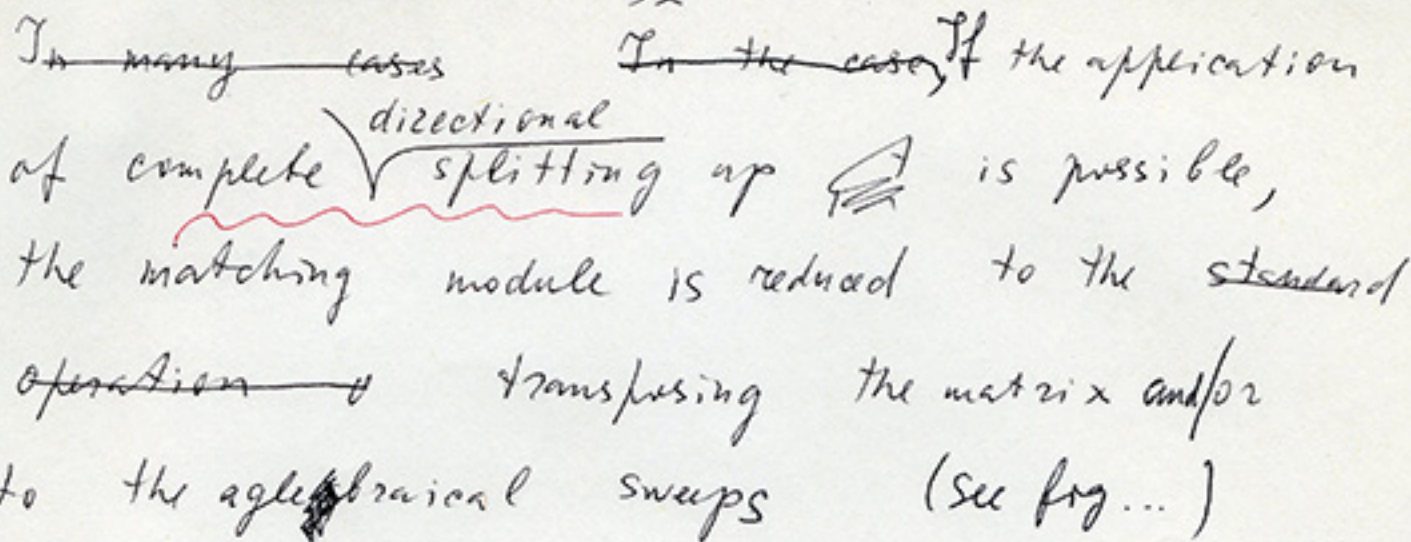 In many cases In the case, If the application
directional
of complete splitting up is possible,
the matching module is reduced to the standard
operation o transposing the matrix and/or
to the aglebraical sweeps (see fig...)